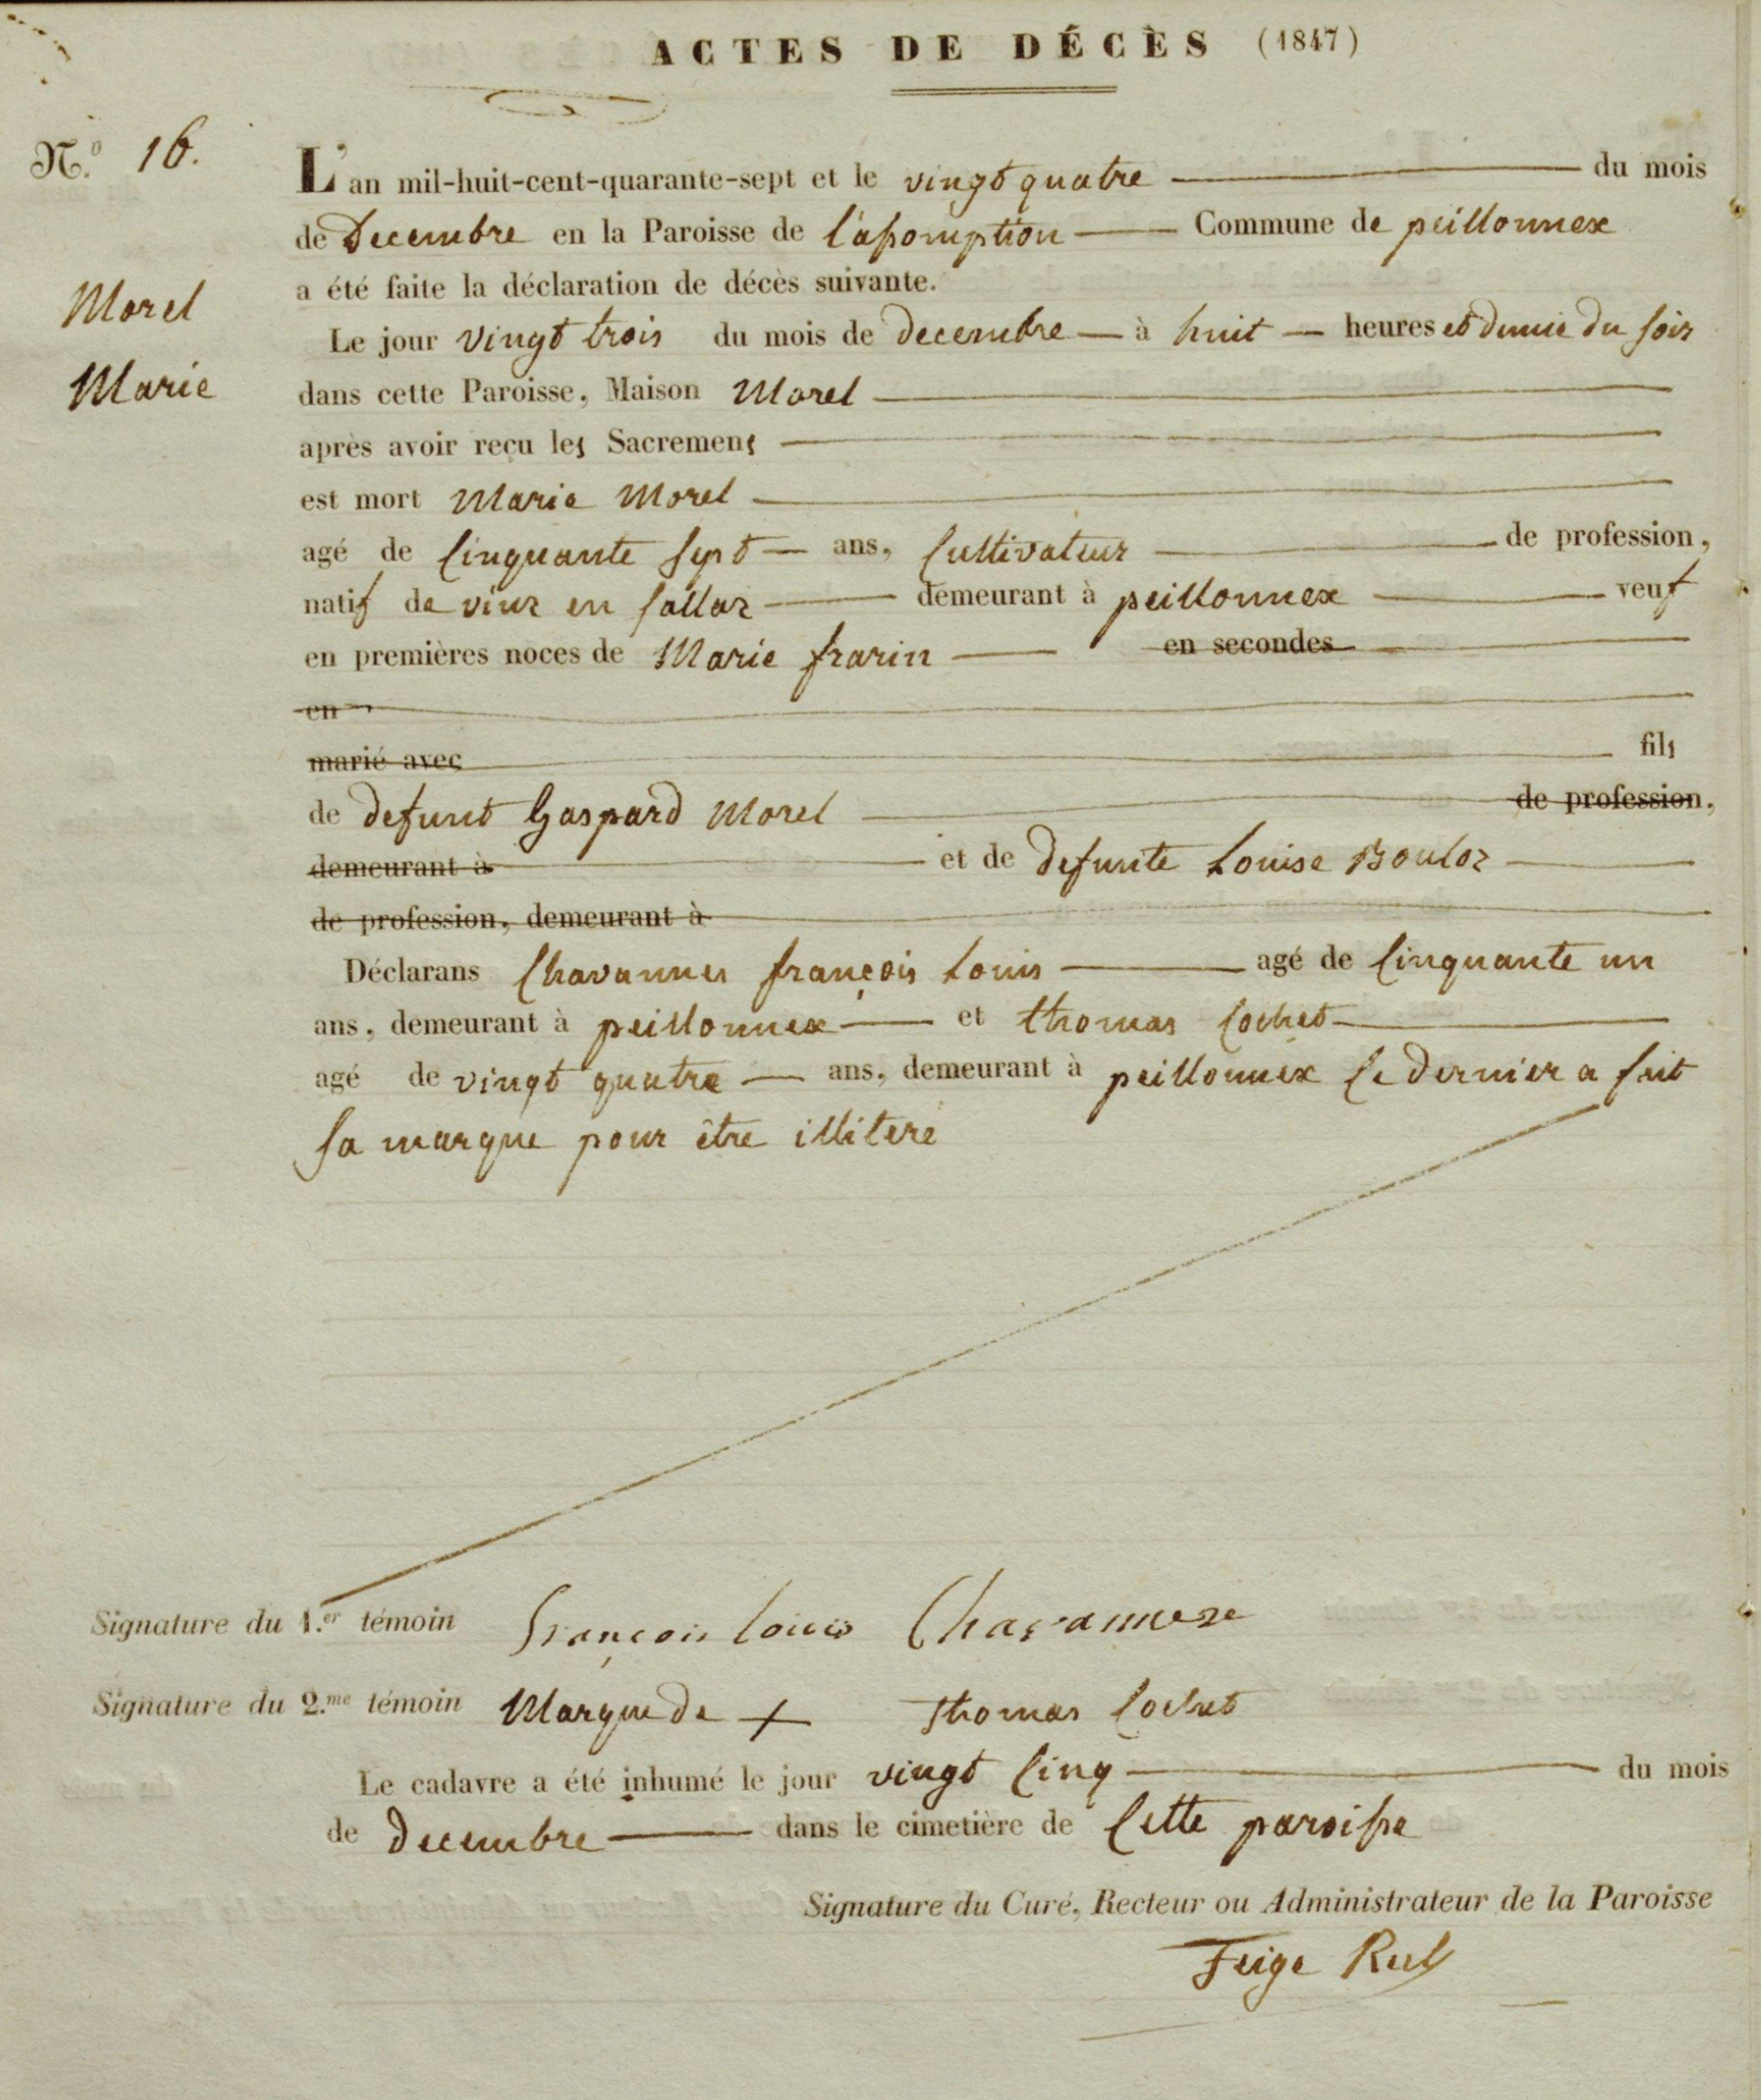 ACTES DE DÉCÈS (1847)
N.º 16.
L'an mil-huit-cent-quarante-sept et le vingt quatre du mois
de Decembre en la Paroisse de l'assomption Commune de peillonnex
a été faite la déclaration de décès suivante.
Morel
Marie
Le jour vingt trois du mois de decembre à huit heures et demie du soir
dans cette Paroisse, Maison Morel
après avoir reçu les Sacremens
est mort Marie Morel
agé de cinquante sept ans, Cultivateur de profession,
natif de viuz en sallaz demeurant à peillonnex veuf
en premières noces de Marie frarin en secondes
en
marié avec fils
de defunt Gaspard Morel de profession,
demeurant à et de defunte Louise Bouloz
de profession, demeurant à
Déclarans Chavannes françois Louis agé de Cinquante un
ans, demeurant à peillonnex et thomas Cochet
agé de vingt quatre ans, demeurant à peillonnex le dernier a fait
sa marque pour être illitere
Signature du 1.er témoin françois louis Chavannese
Signature du 2.me témoin Marque de + Thomas Cochet
Le cadavre a été inhumé le jour vingt Cinq du mois
de decembre dans le cimetière de Cette paroisse
Signature du Curé, Recteur ou Administrateur de la Paroisse
Feige